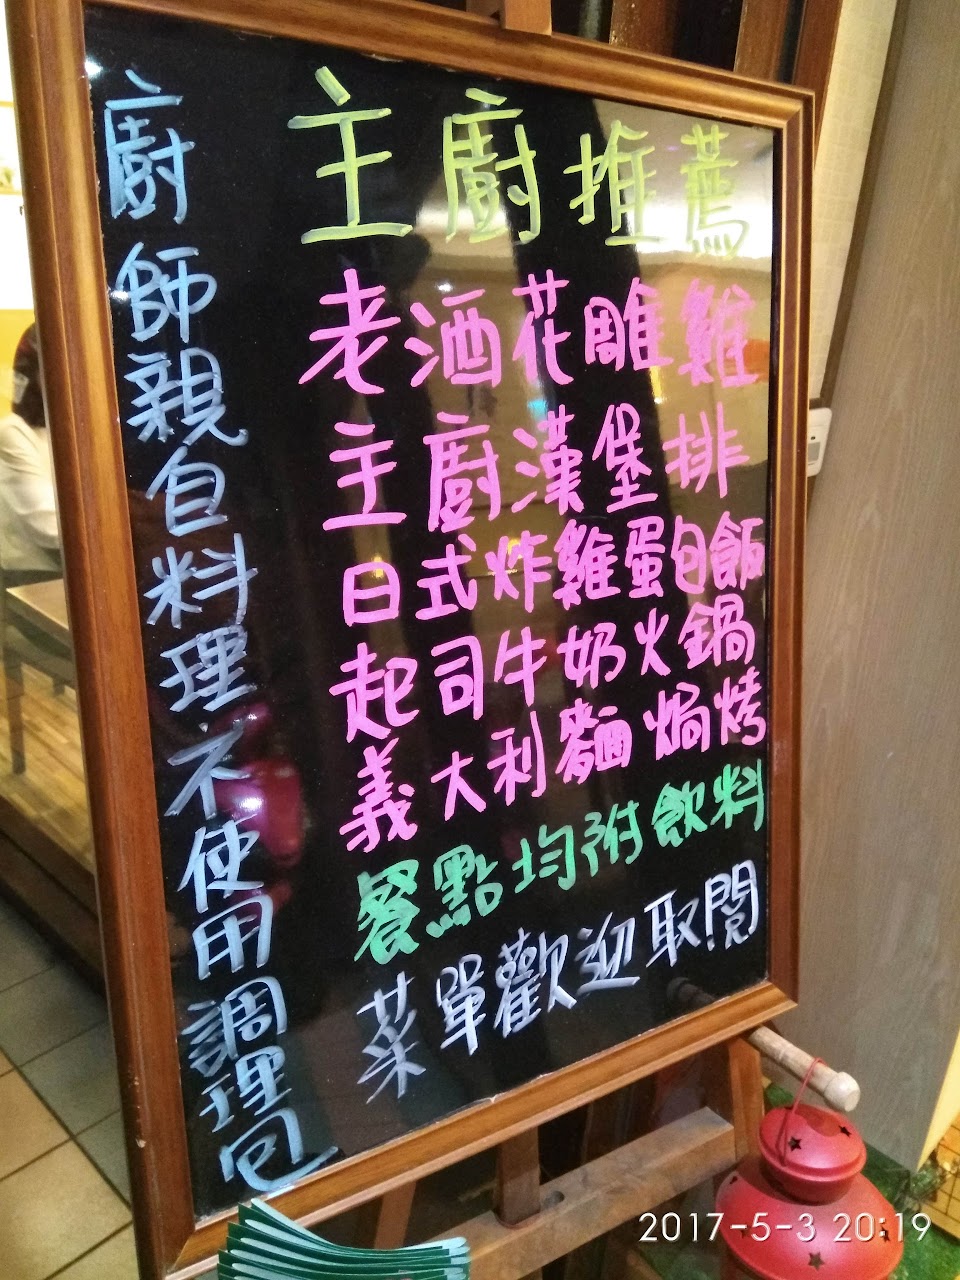 主廚推薦
老酒花雕雞
主廚漢堡排
日式炸雞蛋包飯
起司牛奶火鍋
義大利麵焗烤
餐點均附飲料
菜單歡迎取閱
廚師親自料理不使用調理包
2017-5-3 20:19